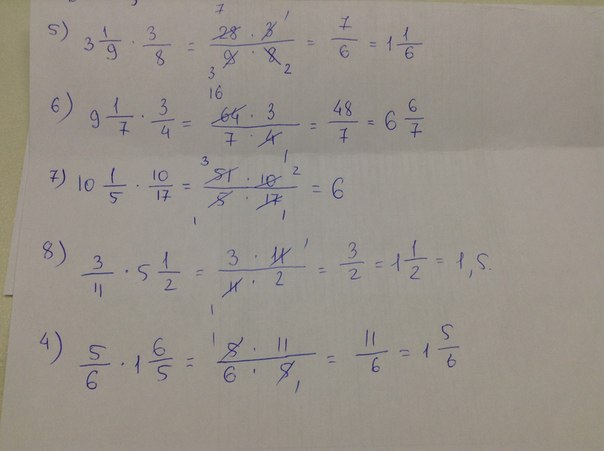 5) 3 1/9 · 3/8 = 28 · 3 / 9 · 8 = 7/6 = 1 1/6
6) 9 1/7 · 3/4 = 64 · 3 / 7 · 4 = 48/7 = 6 6/7
7) 10 1/5 · 10/17 = 51 · 10 / 5 · 17 = 6
8) 3/11 · 5 1/2 = 3 · 11 / 11 · 2 = 3/2 = 1 1/2 = 1,5.
4) 5/6 · 1 6/5 = 5 · 11 / 6 · 5 = 11/6 = 1 5/6